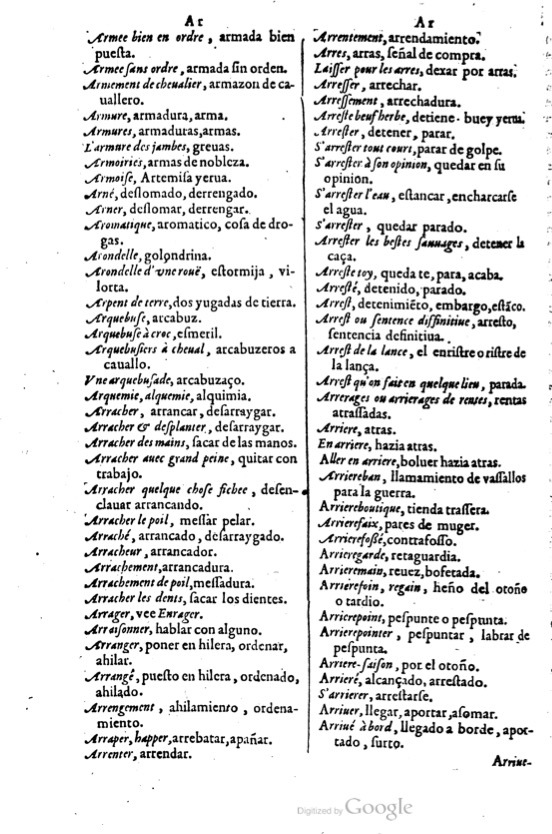 Ar
Armee bien en ordre, armada bien
puesta.
Armee sans ordre, armada sin orden.
Armement de cheualier, armazon de ca-
uallero.
Armure, armadura, arma.
Armures, armaduras, armas.
L'armure des jambes, greuas.
Armoiries, armas de nobleza.
Armoise, Artemisa yerua.
Arné, deslomado, derrengado.
Arner, deslomar, derrengar.
Aromatique, aromatico, cosa de dro-
gas.
Arondelle, golondrina.
Arondelle d'vne rouë, estormija, vi-
lorta.
Arpent de terre, dos yugadas de tierra.
Arquebuse, arcabuz.
Arquebuse à croc, esmeril.
Arquebusiers à cheual, arcabuzeros a
cauallo.
Vne arquebusade, arcabuzaço.
Arquemie, alquemie, alquimia.
Arracher, arrancar, desarraygar.
Arracher & desplanter, desarraygar.
Arracher des mains, sacar de las manos.
Arracher auec grand peine, quitar con
trabajo.
Arracher quelque chose fichee, desen-
clauar arrancando.
Arracher le poil, messar pelar.
Arraché, arrancado, desarraygado.
Arracheur, arrancador.
Arrachement, arrancadura.
Arrachement de poil, messadura.
Arracher les dents, sacar los dientes.
Arrager, vee Enrager.
Arraisonner, hablar con alguno.
Arranger, poner en hilera, ordenar,
ahilar.
Arrangé, puesto en hilera, ordenado,
ahilado.
Arrengement, ahilamienro, ordena-
miento.
Arraper, happer, arrebatar, apañar.
Arrenter, arrendar.
Ar
Arrentement, arrendamiento.
Arres, arras, señal de compra.
Laisser pour les arres, dexar por arras.
Arresser, arrechar.
Arressement, arrechadura.
Arreste beuf herbe, detiene buey yerua.
Arrester, detener, parar.
S'arrester tout court, parar de golpe.
S'arrester à son opinion, quedar en su
opinion.
S'arrester l'eau, estancar, encharcarse
el agua.
S'arrester, quedar parado.
Arrester les bestes sauuages, detener la
caça.
Arreste toy, queda te, para, acaba.
Arresté, detenido, parado.
Arrest, detenimiẽto, embargo, estãco.
Arrest ou sentence diffinitiue, arresto,
sentencia definitiua.
Arrest de la lance, el enristre o ristre de
la lança.
Arrest qu'on fait en quelque lieu, parada.
Arrerages ou arrierages de rentes, rentas
atrassadas.
Arriere, atras.
En arriere, hazia atras.
Aller en arriere, boluer hazia atras.
Arriereban, llamamiento de vassallos
para la guerra.
Arriereboutique, tienda trassera.
Arrierefaix, pares de muger.
Arrierefossé, contrafosso.
Arrieregarde, retaguardia.
Arrieremain, reuez, bofetada.
Arrierefoin, regain, heno del otoño
o tardio.
Arrierepoint, pespunte o pespunta.
Arrierepointer, pespuntar, labrar de
pespunta.
Arriere-saison, por el otoño.
Arrieré, alcançado, arrestado.
S'arrierer, arrestarse.
Arriuer, llegar, aportar, asomar.
Arriué à bord, llegado a borde, apor-
tado, surto.
Arriue-
Digitized by Google